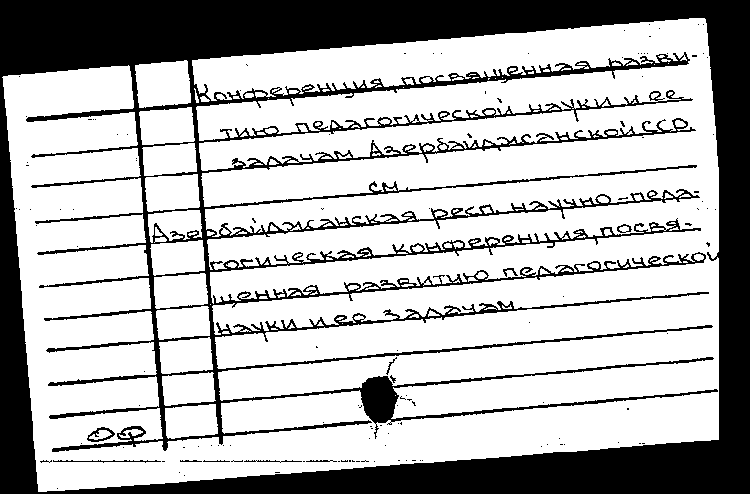 Конференция, посвященная разви-
тию педагогической науки и ее
задачам Азербайджанской ССР.
см.
Азербайджанская респ. научно-педа-
гогическая конференция, посвя-
щенная развитию педагогической
науки и ее задачам.
ОФ